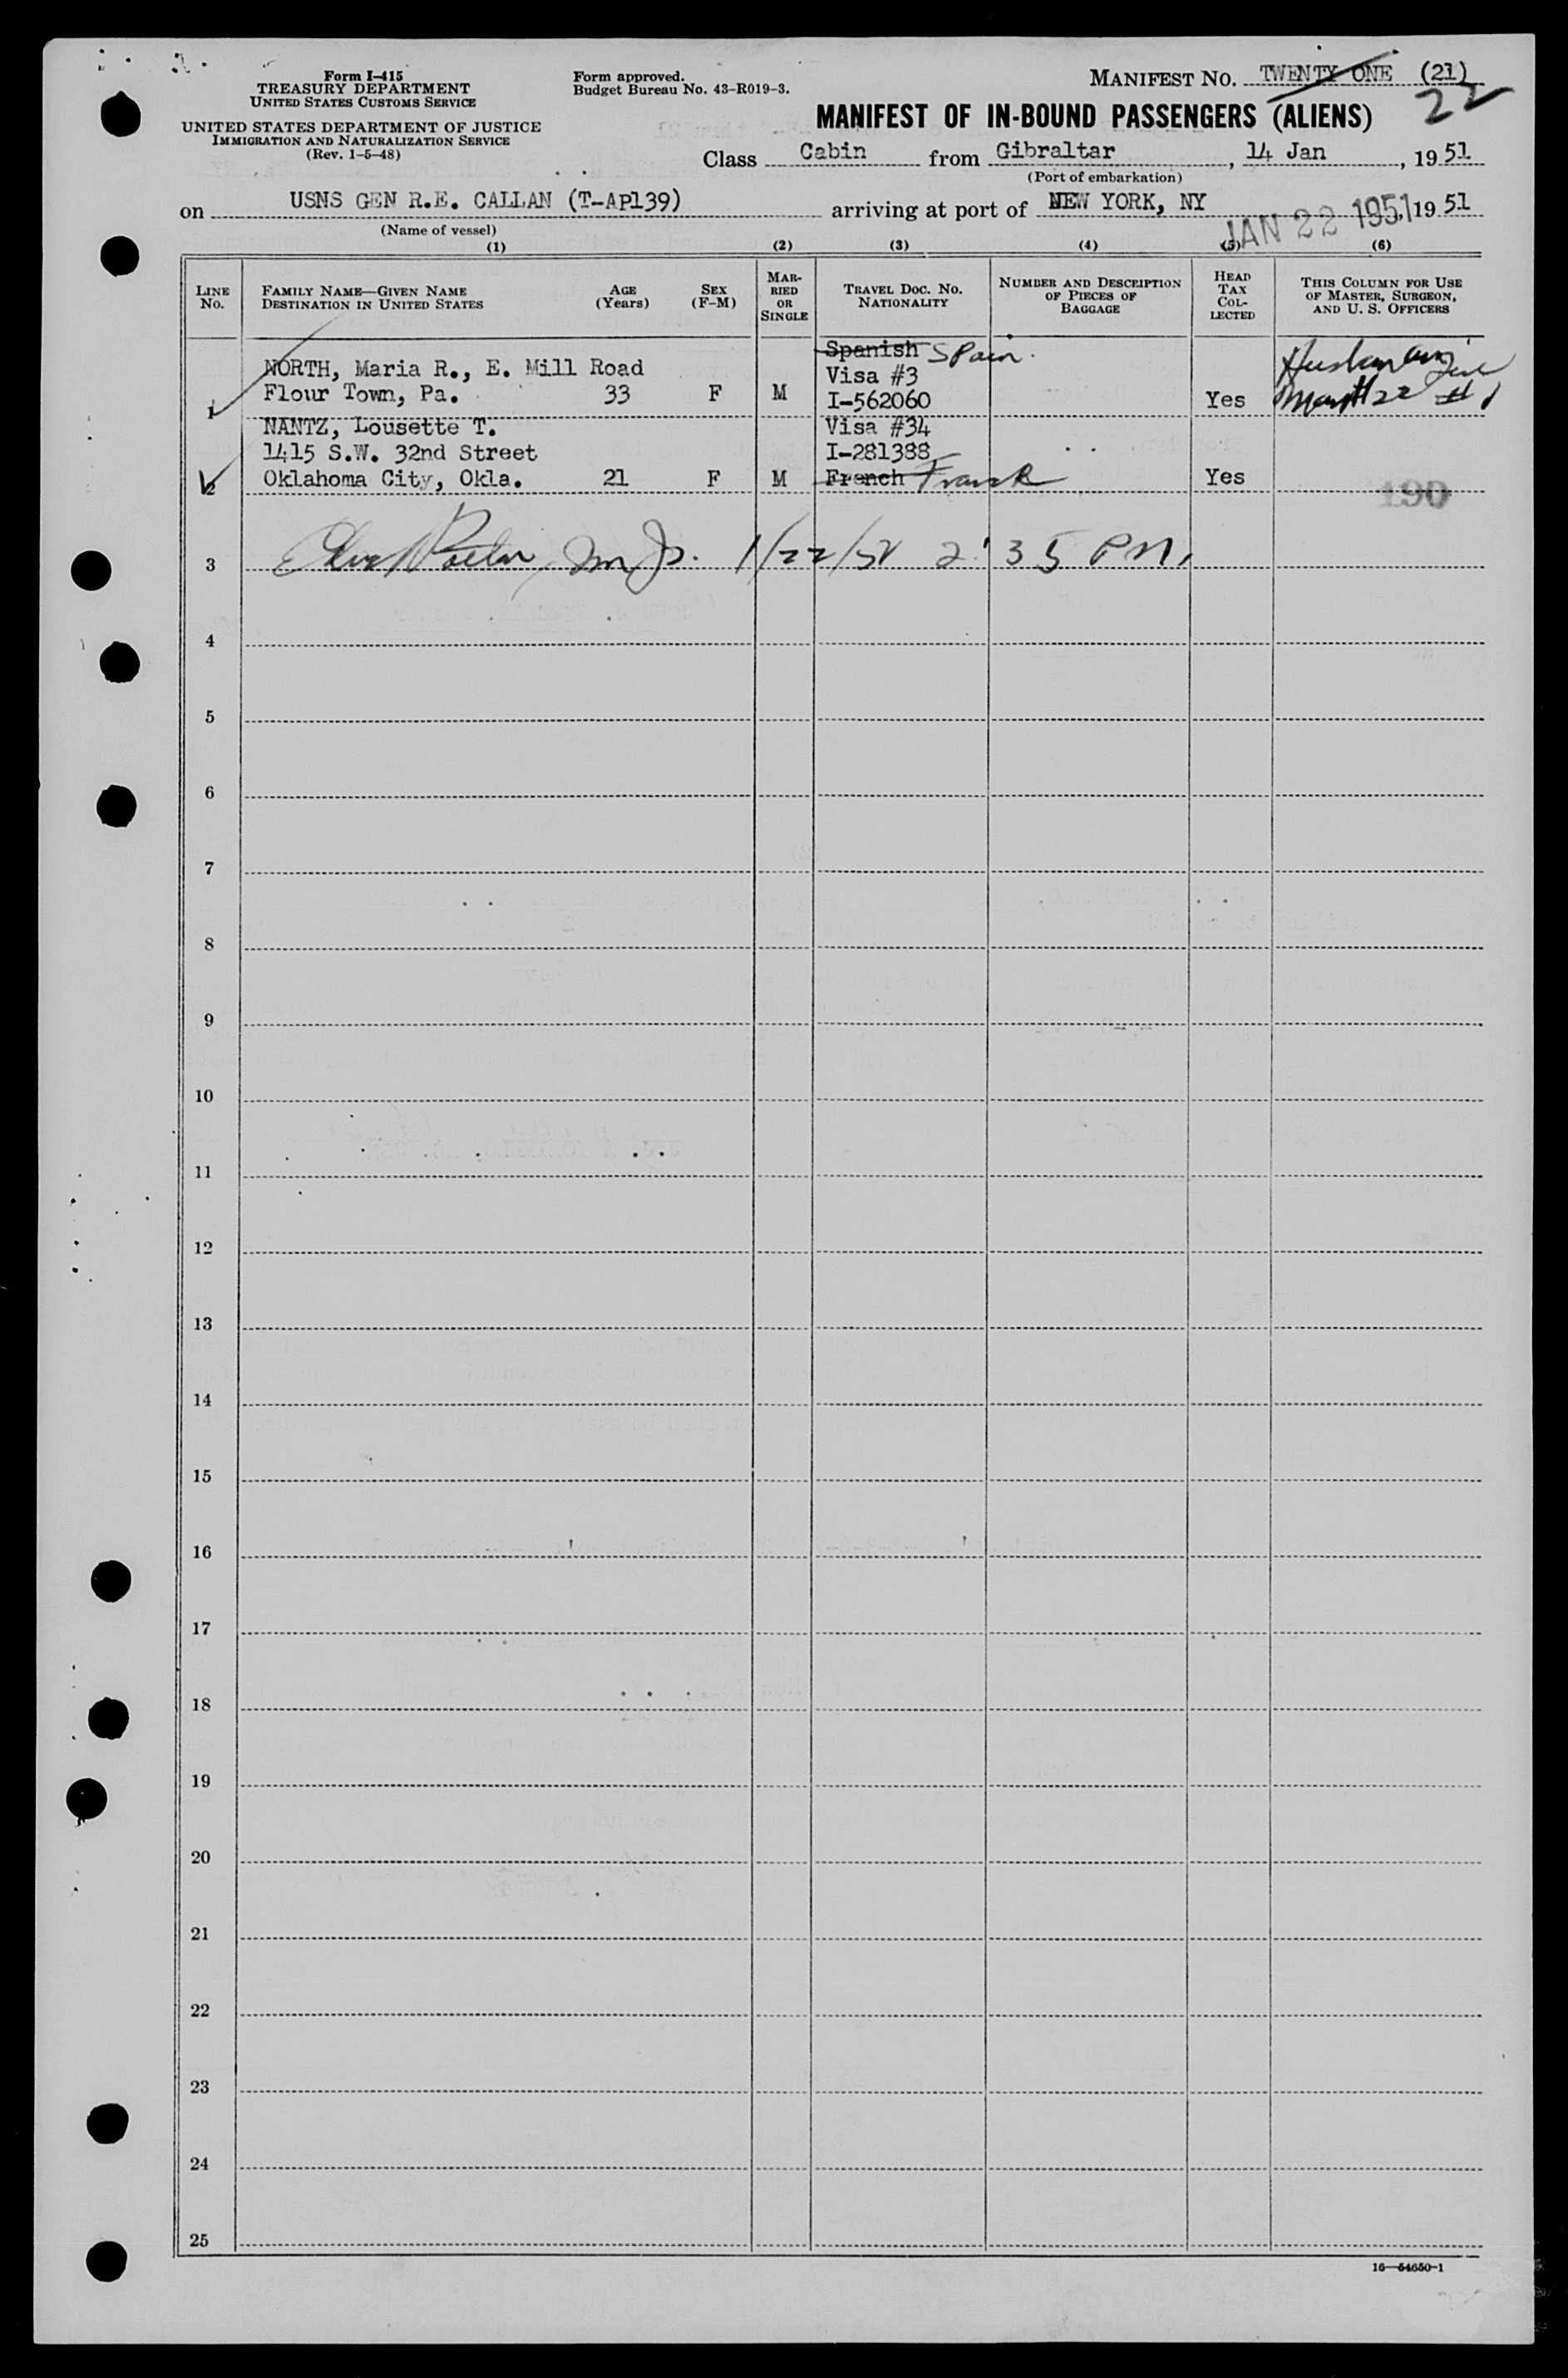 Form I-415
TREASURY DEPARTMENT
UNITED STATES CUSTOMS SERVICE
UNITED STATES DEPARTMENT OF JUSTICE
IMMIGRATION AND NATURALIZATION SERVICE
(Rev. 1-5-48)
Form approved.
Budget Bureau No. 43-R019-3.
MANIFEST NO. TWENTY ONE (21)
22
MANIFEST OF IN-BOUND PASSENGERS (ALIENS)
Class Cabin from Gibraltar, 14 Jan, 1951
(Port of embarkation)
on USNS GEN R.E. CALLAN (T-AP139) arriving at port of NEW YORK, NY 1951
JAN 22 1951
(Name of vessel)
(1) (2) (3) (4) (5) (6)
LINE No.
FAMILY NAME—GIVEN NAME
DESTINATION IN UNITED STATES
AGE (Years)
SEX (F-M)
MARRIED OR SINGLE
TRAVEL DOC. NO. NATIONALITY
NUMBER AND DESCRIPTION OF PIECES OF BAGGAGE
HEAD TAX COLLECTED
THIS COLUMN FOR USE OF MASTER, SURGEON, AND U. S. OFFICERS
Spanish Spain.
NORTH, Maria R., E. Mill Road Visa #3
1 Flour Town, Pa. 33 F M I-562060 Yes
NANTZ, Lousette T. Visa #34
1415 S.W. 32nd Street I-281388
2 Oklahoma City, Okla. 21 F M French Yes
190
3 2:35 PM.
4
5
6
7
8
9
10
11
12
13
14
15
16
17
18
19
20
21
22
23
24
25
16—54650-1